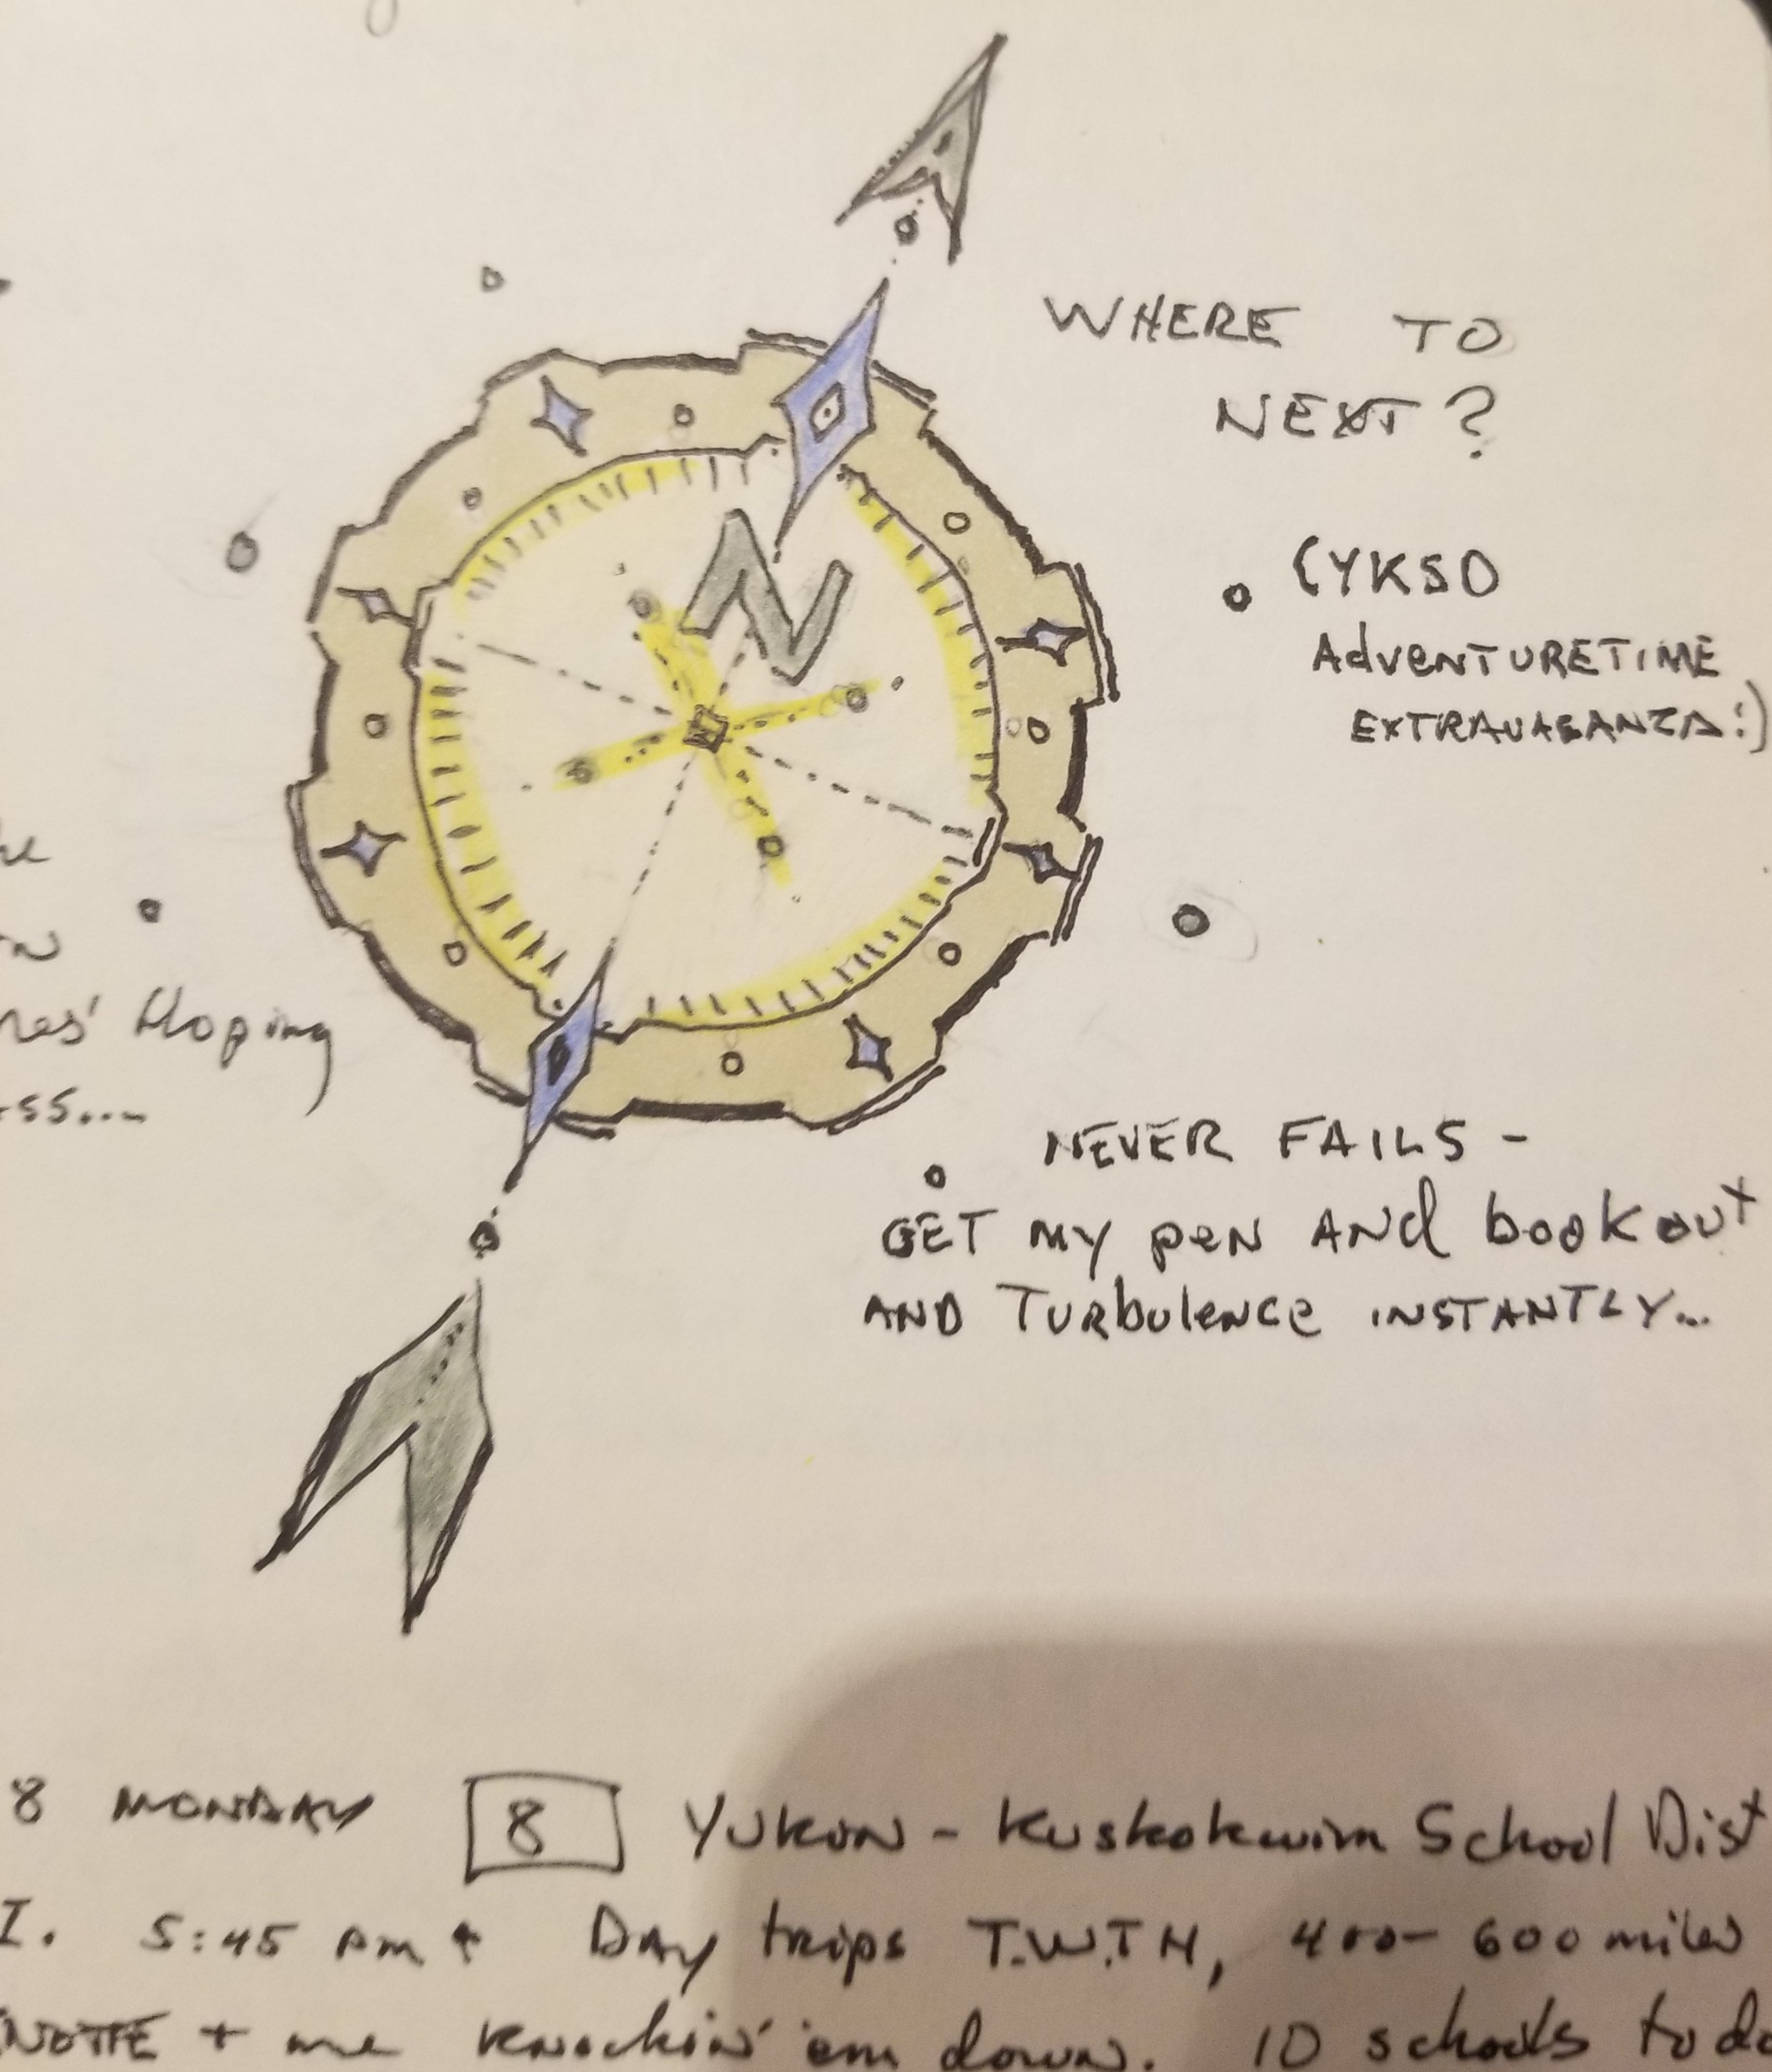 N
WHERE TO
NEXT?
(YKSD
AdVENTURETIME
EXTRAVAGANZA:)
Hoping
NEVER FAILS -
GET MY peN ANd bookout
AND TURbulENCE INSTANTLY...
8 MONDAY 8 YUKON - Kuskokwim School Dist
I. 5:45 pm DAY trips T.W.TH, 400-600 miles
NOTTE + me knockin' 'em down. 10 schools to do